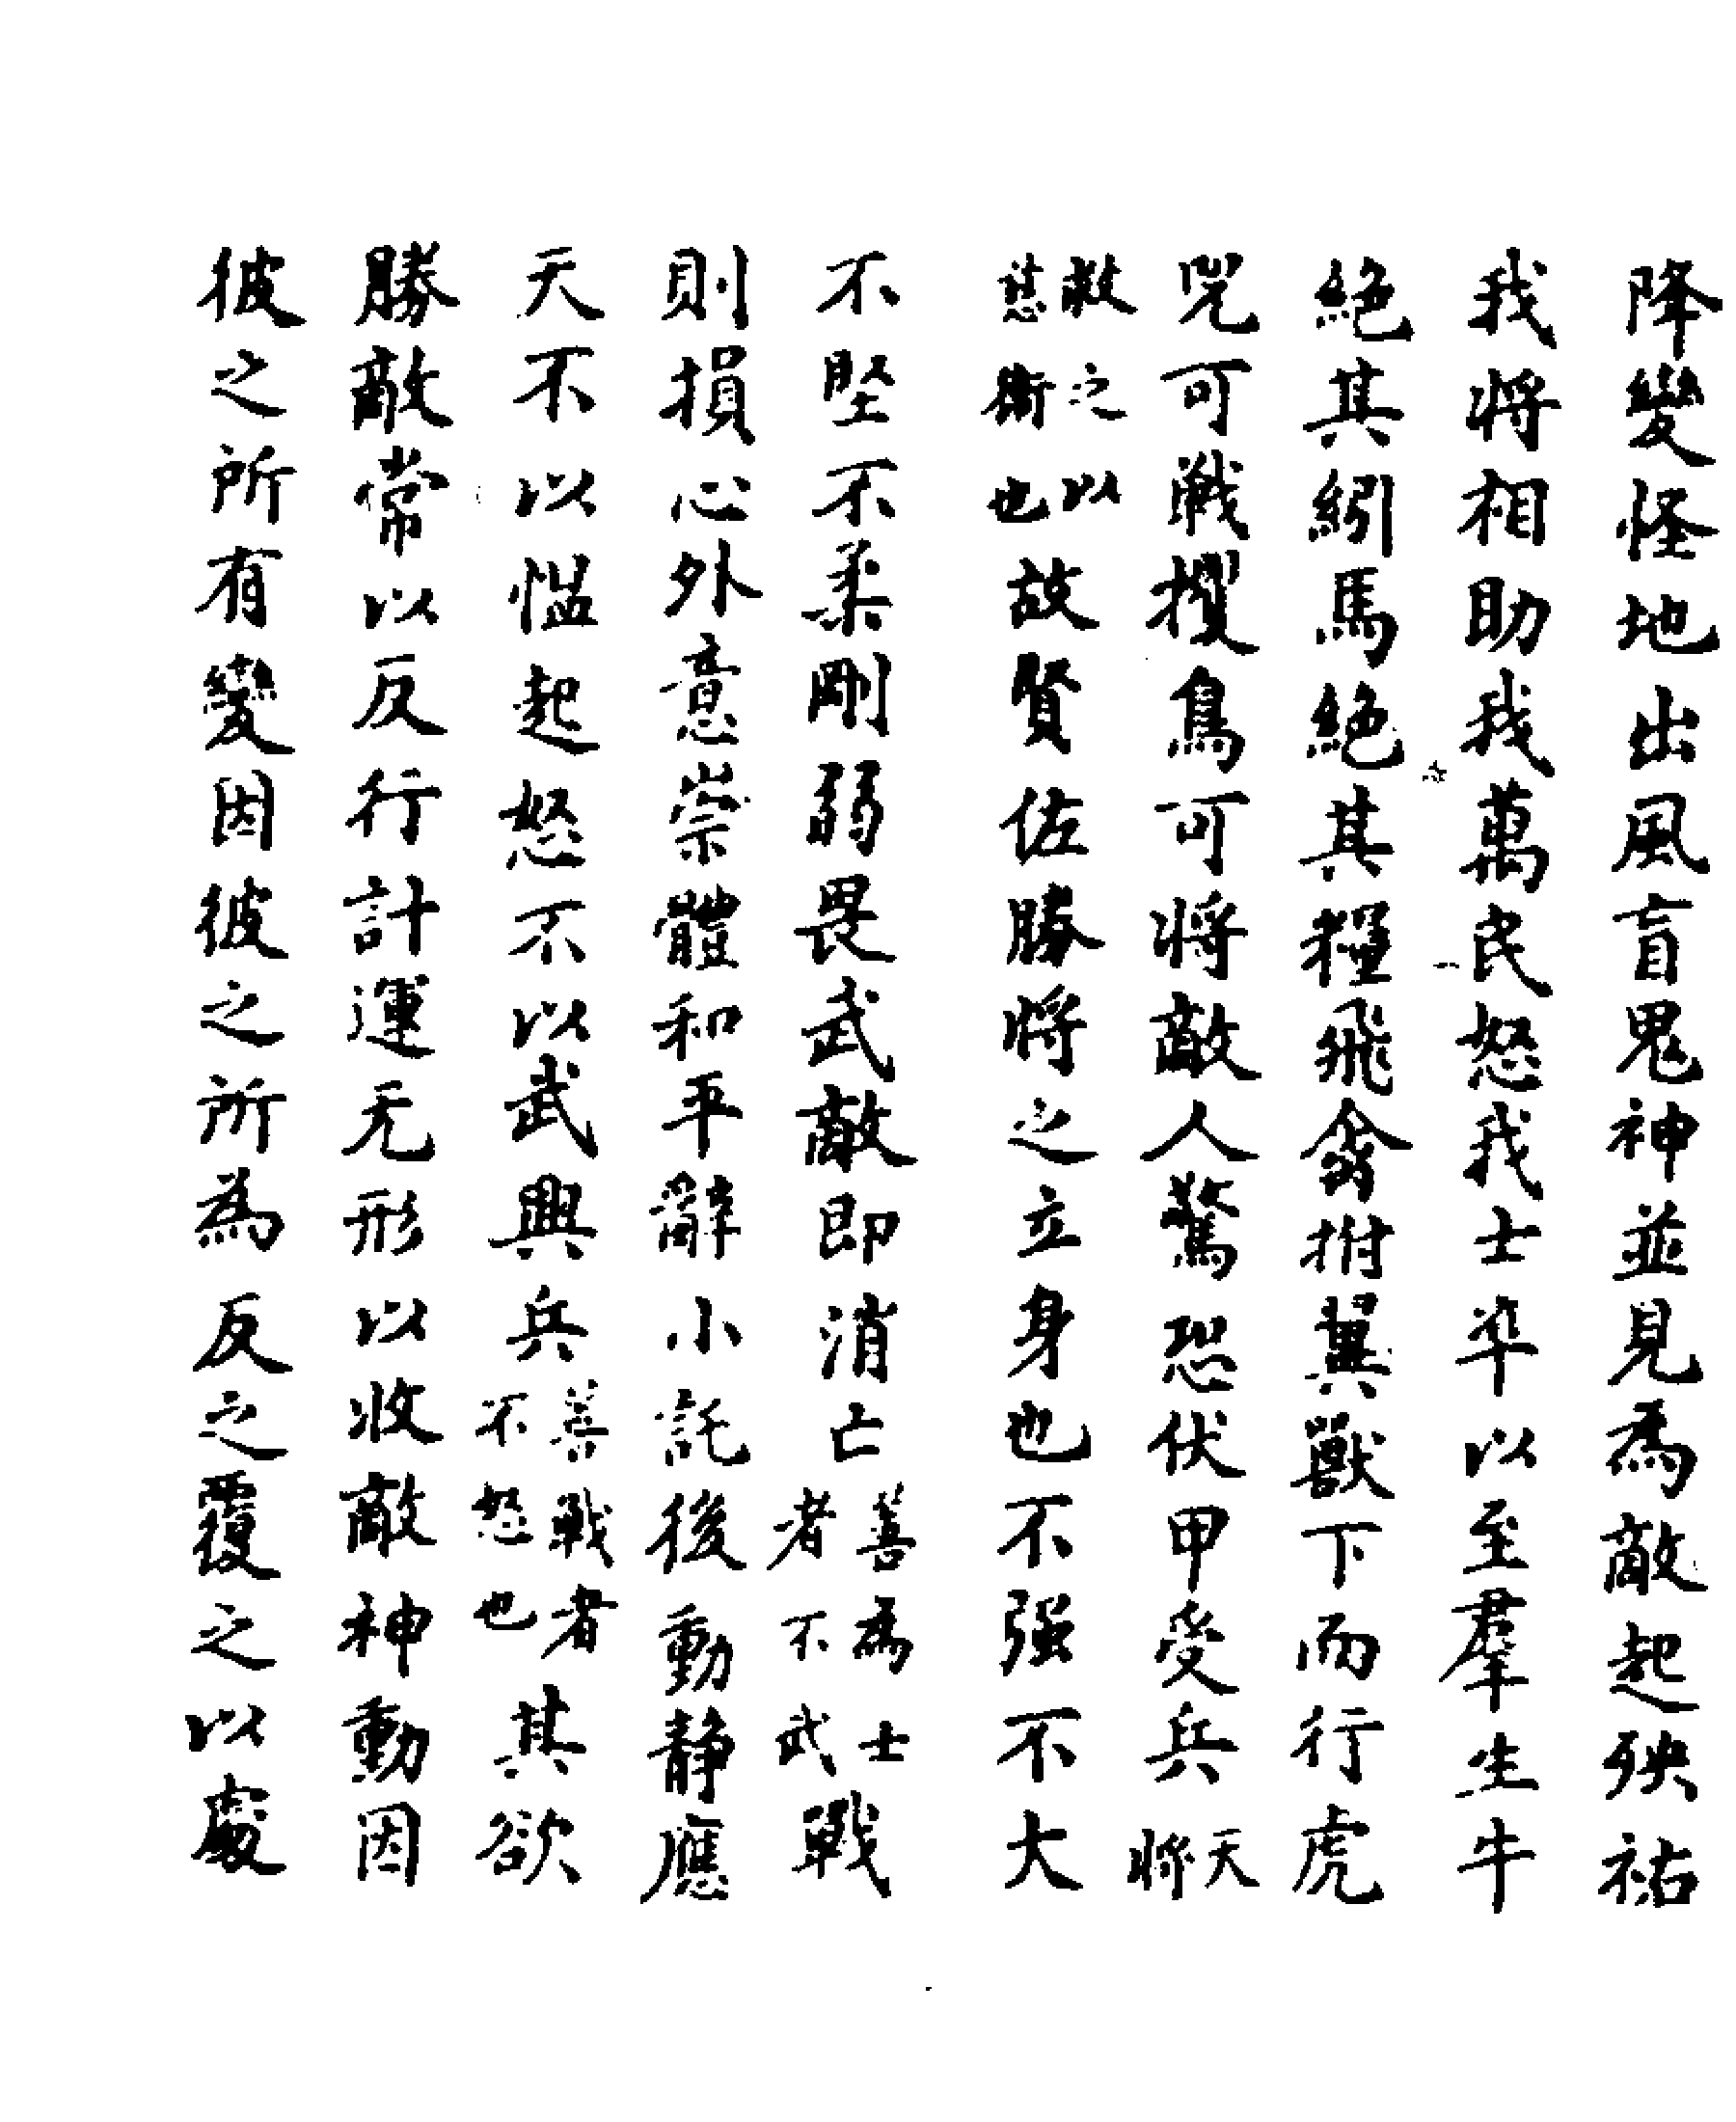 降變怪地出風盲鬼神並見為敵起殃祐
我將相助我萬民怒我士卒以至羣生牛
絕其紖馬絕其糧飛禽拊翼獸下而行虎
兕可戰攫鳥可將敵人驚恐伏甲受兵天將
救之以慈衛也故賢佐勝將之立身也不强不大
不堅不柔剛弱畏武敵即消亡善為士者不武戰
則損心外意崇體和平辭小託後動静應
天不以慍起怒不以武興兵善戰者不怒也其欲
勝敵常以反行計運无形以收敵神動因
彼之所有變因彼之所為反之覆之以處